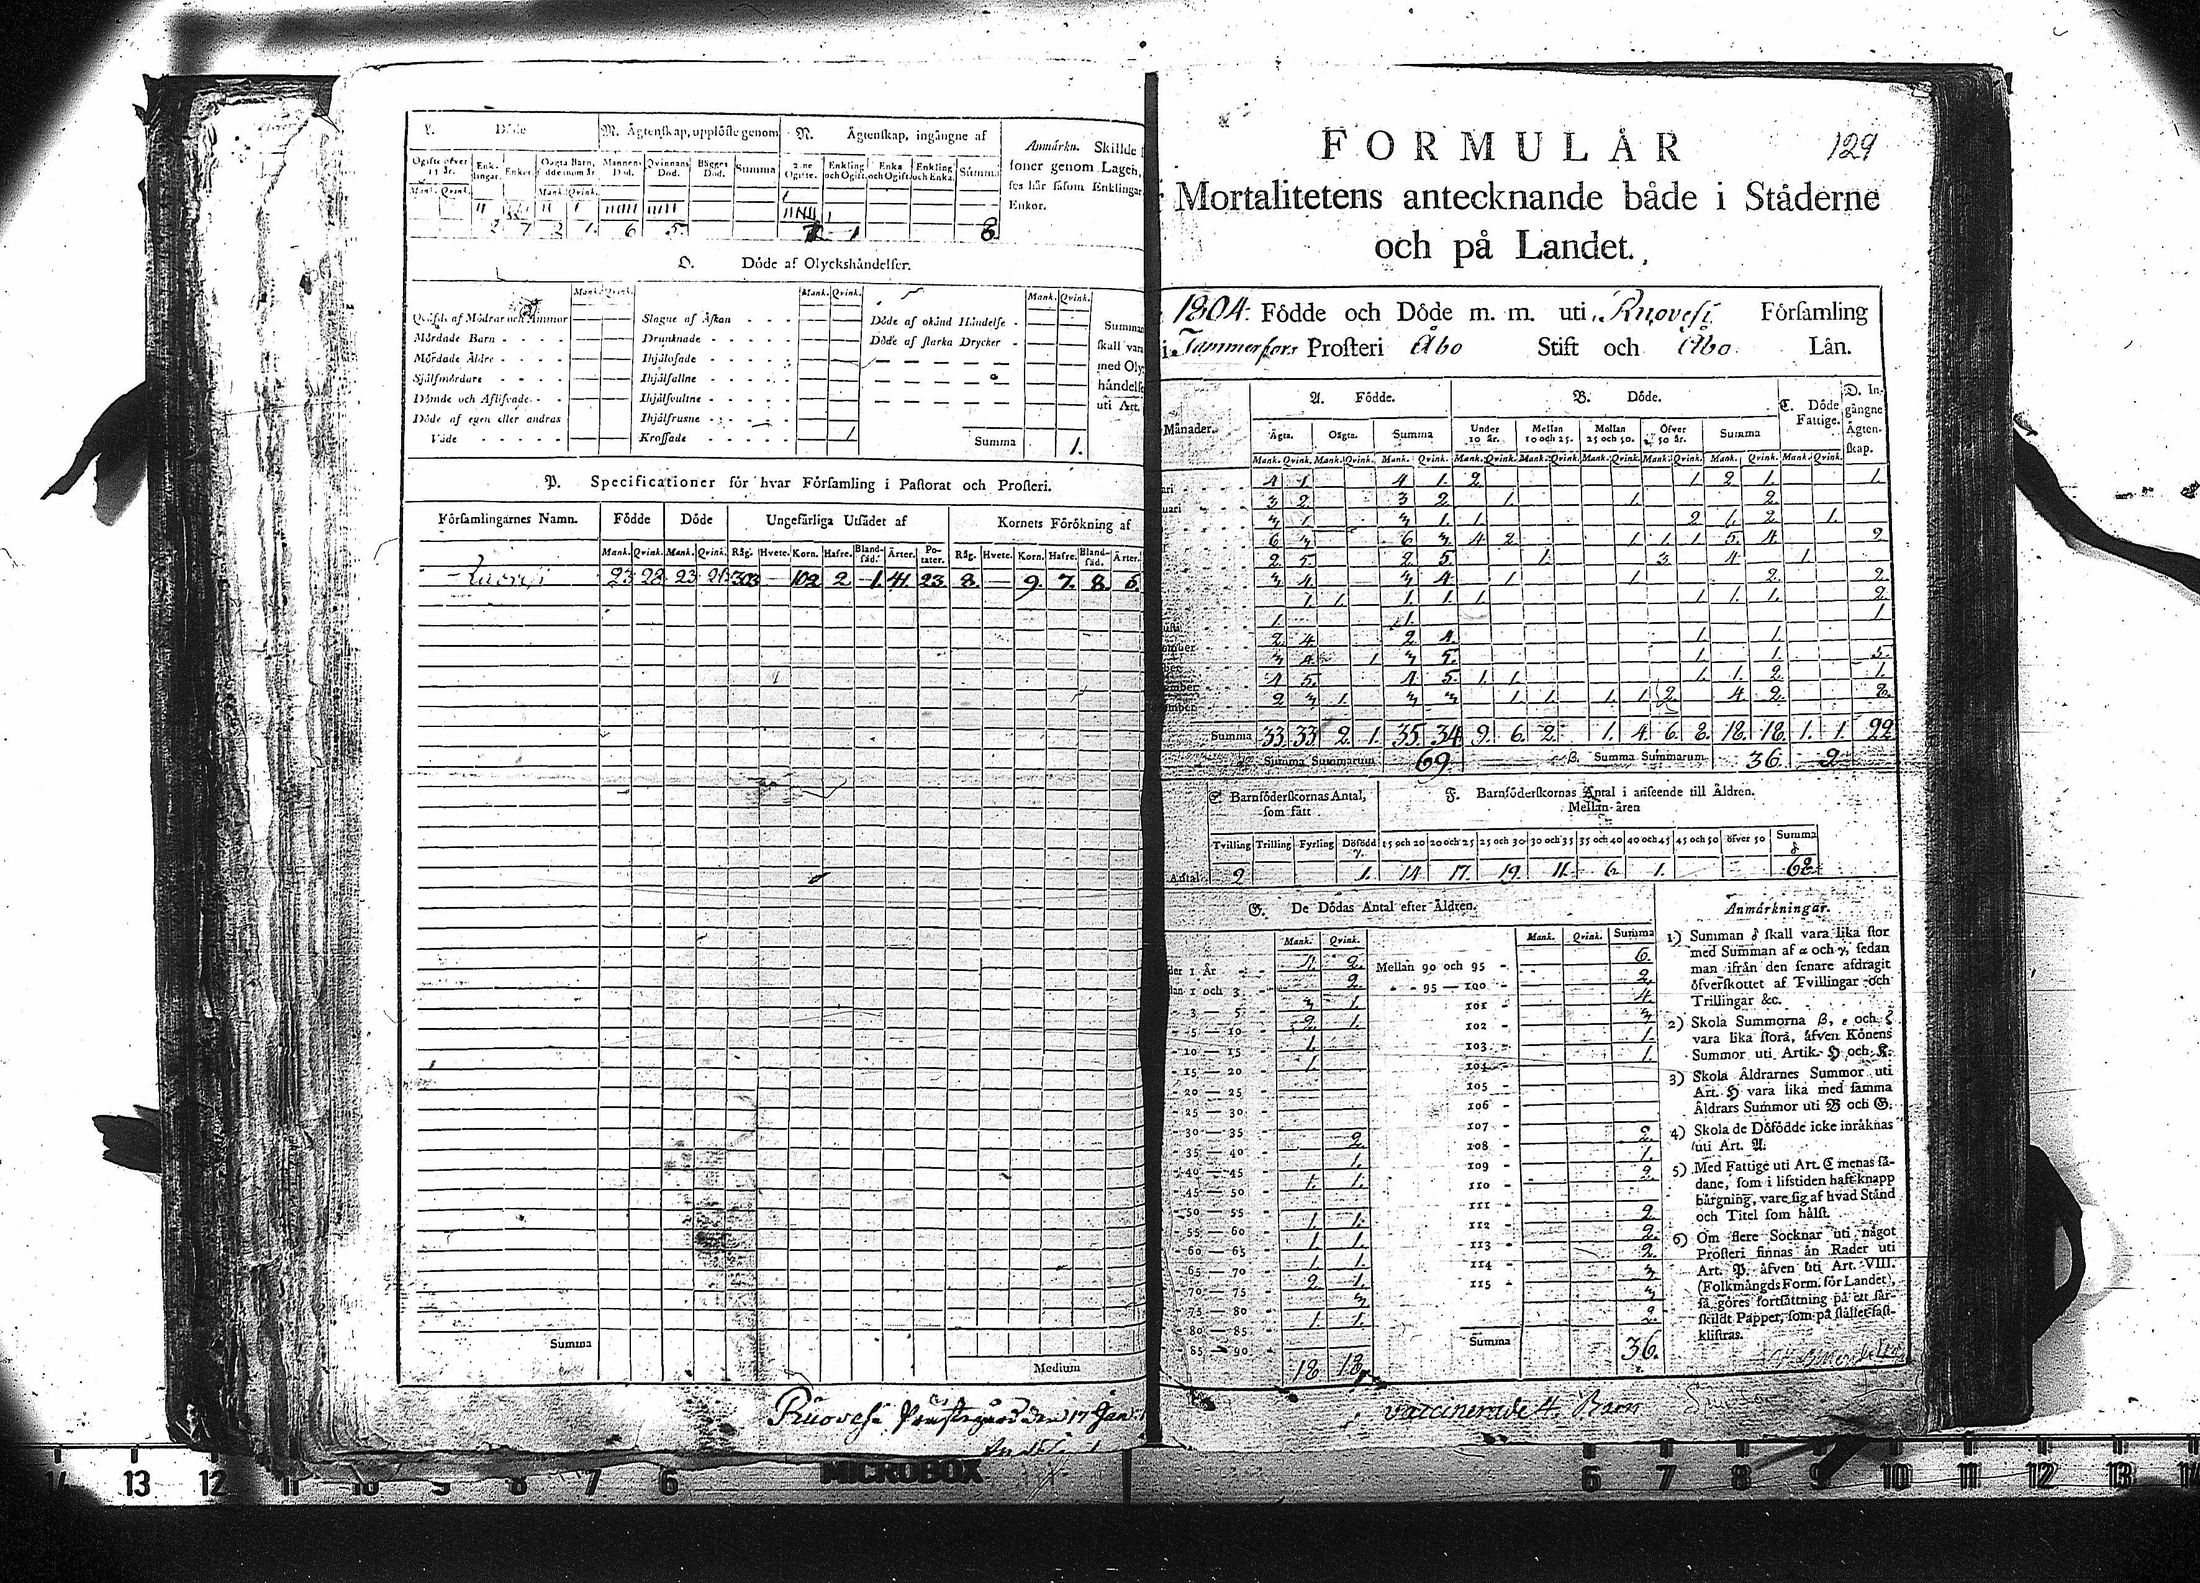 L. Döde
M. Ägtenskap, upplöste genom
N. Ägtenskap, ingångne af
Anmärkn. Skillde
soner genom Lagen,
ses här såsom Enklingar
Enkor.
Ogifte öfver 15 år.
Enklingar.
Enkor.
Oägta Barn, döde inom år.
Mannens Död.
Qvinnans Död.
Bägges Död.
Summa
2:ne Ogifte.
Enkling och Ogift.
Enka och Ogift.
Enkling och Enka.
Summa
Mank. Qvink. Mank. Qvink.
2 7 2 1. 6 5 7 1 8
O. Döde af Olyckshändelser.
Mank. Qvink. Mank. Qvink. Mank. Qvink.
Qväfde af Mödrar och Ammor
Mördade Barn
Mördade Äldre
Självmördare
Dömde och Aflifvade
Döde af egen eller andras
Våde
Slagne af Åskan
Drunknade
Ihjälosade
Ihjälfallne
Ihjälsvultne
Ihjälfrusne
Krossade 1
Döde af okänd Händelse
Döde af starka Drycker
Summa 1.
Summan
skall vara
med Oly
händelse
uti Art.
P. Specificationer för hvar Församling i Pastorat och Prosteri.
Församlingarnes Namn. Födde Döde Ungefärliga Utsädet af Kornets Förökning af
Mank. Qvink. Mank. Qvink. Råg. Hvete. Korn. Hafre. Blandsäd. Ärter. Potater. Råg. Hvete. Korn. Hafre. Blandsäd. Ärter.
Ruovesi 23 28 23 303 — 102 2 1. 41. 23. 8. — 9. 7. 8. 6.
Summa
Medium
Ruovesi Prästegård den 17 Jan.
MICROBOX
14 13 12 11 10 9 8 7 6
FORMULÄR
129
Mortalitetens antecknande både i Städerne
och på Landet.
1804. Födde och Döde m. m. uti Ruovesi Församling
i Tammerfors Prosteri Åbo Stift och Åbo Län.
Månader.
A. Födde.
B. Döde.
C. Döde Fattige.
D. Ingångne Ägtenskap.
Ägta. Oägta. Summa Under 10 år. Mellan 10 och 25. Mellan 25 och 50. Öfver 50 år. Summa
Mank. Qvink. Mank. Qvink. Mank. Qvink. Mank. Qvink. Mank. Qvink. Mank. Qvink. Mank. Qvink. Mank. Qvink. Mank. Qvink.
4 1. 4 1. 2 1 2 1. 1.
3 2. 3 2 1. 1. 2
3 1. 3 1. 1. 2 1. 2 1.
6 3 6 3 4 2 1 1 1 5. 4 2
2 5. 2 5. 1. 3 4 1.
3 4 3 4 1 1 2. 2.
1. 1. 1. 1. 1. 1 1. 1. 2
1. 1. 1
2 4 2 4. 1. 1.
3 4 1 3 5. 1. 1.
4 5. 4 5. 1 1. 1. 1. 2 1.
2 3 1. 3 3 1. 1. 1. 1 2 4 2
Summa 33 33 2. 1. 35 34 9. 6. 2 1. 4. 6. 8. 18. 18. 1. 1. 22
Summa Summarum 69. ß. Summa Summarum 36 2
E. Barnföderskornas Antal, som fått
F. Barnföderskornas Antal i anseende till Åldren.
Mellan åren
Tvilling Trilling Fyrling Döfödd 15 och 20 20 och 25 25 och 30 30 och 35 35 och 40 40 och 45 45 och 50 öfver 50 Summa
Antal 2 1. 14 17. 19. 11. 6. 1. 68.
G. De Dödas Antal efter Åldren.
Mank. Qvink. Mank. Qvink. Summa
der 1 År 4. 2. Mellan 90 och 95 6.
lan 1 och 3 2 95 — 100 2.
3 — 5 3 1. 101 4.
5 — 10 2. 1. 102 3
10 — 15 1. 103 1.
15 — 20 1. 104 1.
20 — 25 105
25 — 30 106
30 — 35 107
35 — 40 2 108 2.
40 — 45 1. 109 1.
45 — 50 1. 1. 110 2.
50 — 55 111
55 — 60 1. 1. 112 2
60 — 65 1. 1. 113 2.
65 — 70 1. 1. 114 2.
70 — 75 2 1. 115 3
75 — 80 3 3
80 — 85 1. 1. 2.
85 — 90
18 18. Summa 36.
Anmärkningar.
1) Summan δ skall vara lika stor
med Summan af α och γ, sedan
man ifrån den senare afdragit
öfverskottet af Tvillingar och
Trillingar &c.
2) Skola Summorna ß, ε och ζ
vara lika stora, äfven Könens
Summor uti Artik. H och K.
3) Skola Åldrarnes Summor uti
Art. H vara lika med samma
Åldrars Summor uti B och G.
4) Skola de Döfödde icke inräknas
uti Art. A.
5) Med Fattige uti Art. C menas så-
dane, som i lifstiden haft knapp
bärgning, vare sig af hvad Stånd
och Titel som hälst.
6) Om flere Socknar uti något
Prosteri finnas än Rader uti
Art. P. äfven uti Art. VIII.
(Folkmängds Form. för Landet),
så göres fortsättning på ett sär-
skildt Papper, som på stället fast-
klistras.
vaccinerade 4. Barn
6 7 8 9 10 11 12 13 14